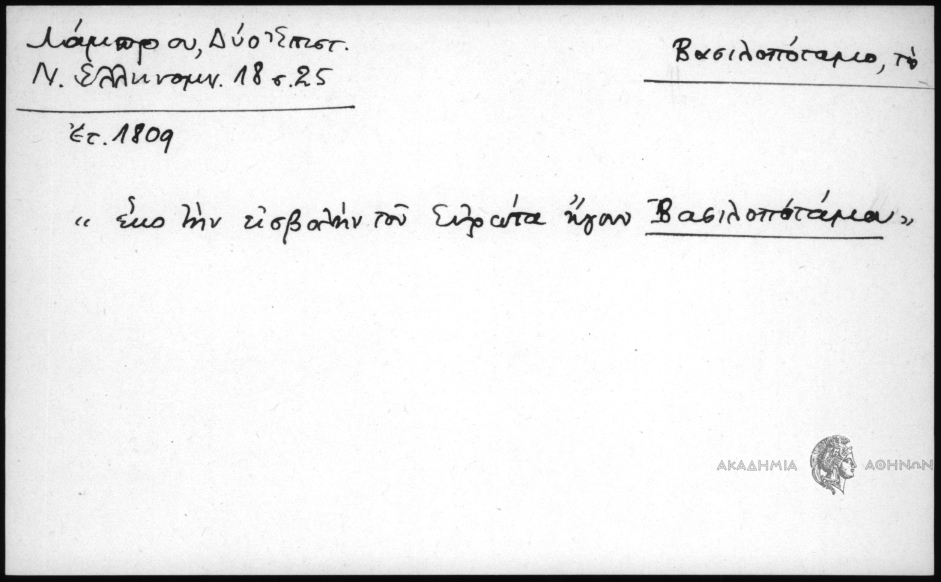 Λάμπρου, Δύο Ἐπιστ.
Ν. Ἑλληνομν. 18 σ. 25
Βασιλοπόταμο, τὸ
ἔτ. 1809
“ τὴν εἰσβολὴν τοῦ Εὐρώτα ἤγουν Βασιλοπόταμου”
ΑΚΑΔΗΜΙΑ ΑΘΗΝΩΝ